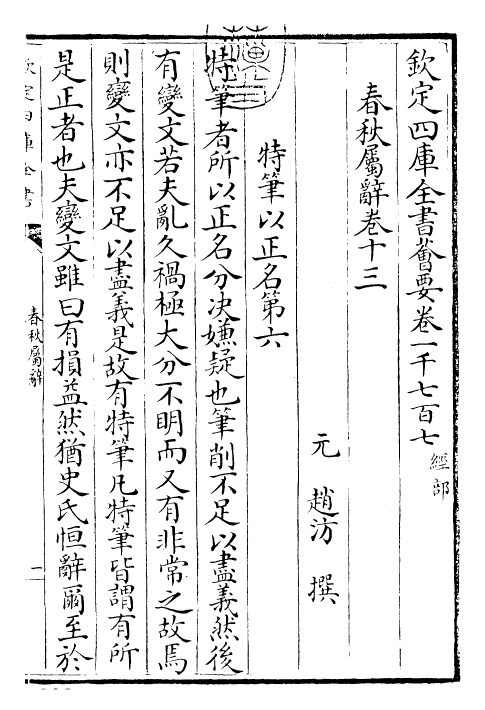 欽定四庫全書薈要卷一千七百七 經部
春秋屬辭卷十三
元 趙汸 撰
特筆以正名第六
特筆者所以正名分決嫌疑也筆削不足以盡義然後
有變文若夫亂久禍極大分不明而又有非常之故焉
則變文亦不足以盡義是故有特筆凡特筆皆謂有所
是正者也夫變文雖曰有損益然猶史氏恒辭爾至於
欽定四庫全書
春秋屬辭